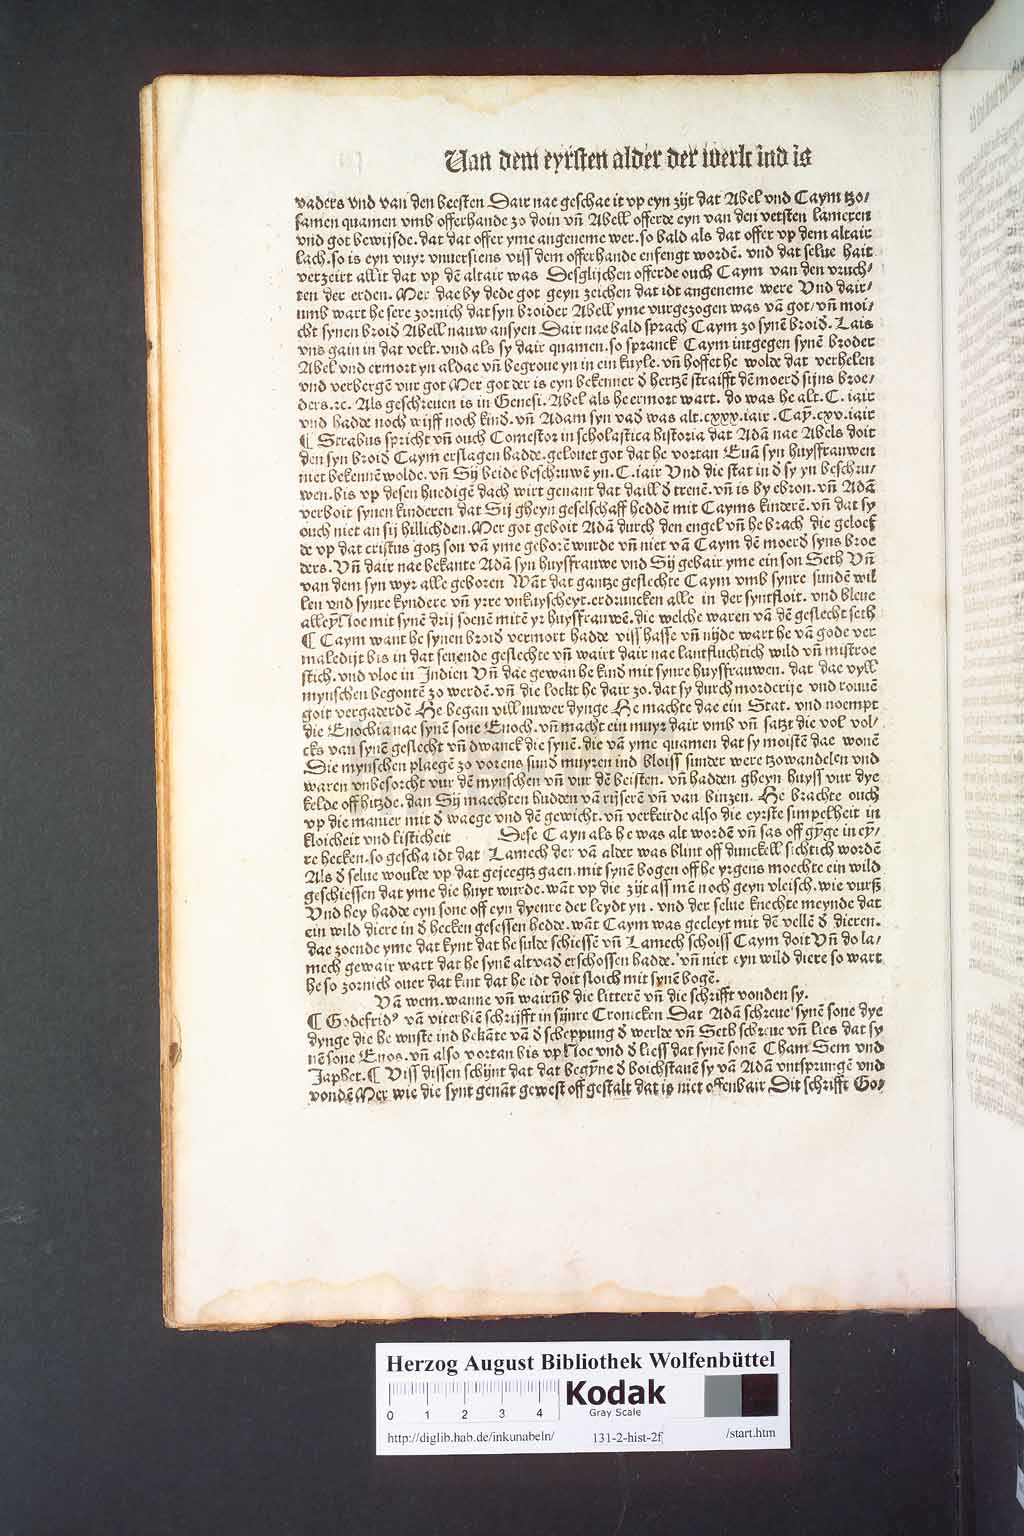 Van dem eyrsten alder der werlt ind is
vaders vnd van den beesten Dair nae geschae it vp eyn zijt dat Abel vnd Caym tzo/
samen quamen vmb offerhande zo doin vn̄ Abell offerde eyn van den vetsten lameren
vnd got bewijsde. dat dat offer yme angeneme wer. so bald als dat offer vp dem altair
lach. so is eyn vuyr vnuersiens viss dem offerhande enfengt wordē. vnd dat selue hait
verzeirt all it dat vp dē altair was Desglijchen offerde ouch Caym van den vruch/
ten der erden. Mer dae by dede got geyn zeichen dat idt angeneme were Vnd dair/
umb wart he sere zornich dat syn broider Abell yme vurgezogen was vā got/ vn̄ moi/
cht synen broid Abell nauw ansyen Dair nae bald sprach Caym zo synē broid. Lais
vns gain in dat velt. vnd als sy dair quamen. so spranck Caym intgegen synē broder
Abel vnd ermort yn aldae vn̄ begroue yn in ein kuyle. vn̄ hoffet he wolde dat verhelen
vnd verbergē vur got Mer got der is eyn bekenner d hertzē straifft dē moerd sijns broe/
ders. ꝛc. Als geschreuen is in Genesi. Abel als he ermort wart. do was he alt. C. iair
vnd hadde noch wijff noch kind. vn̄ Adam syn vad was alt. cxxx. iair. Caȳ. cxv. iair
¶ Strabus spricht vn̄ ouch Comestor in scholastica historia dat Adā nae Abels doit
den syn broid Caym erslagen hadde. gelouet got dat he vortan Euā syn huysfrauwen
niet bekennē wolde. vn̄ Sij beide beschruwē yn. C. iair Vnd die stat in d sy yn beschru/
wen. bis vp desen huedigē dach wirt genant dat daill d trenē. vn̄ is by ebron. vn̄ Adā
verboit synen kinderen dat Sij gheyn geselschaff heddē mit Cayms kinderē. vn̄ dat sy
ouch niet an sij hillichden. Mer got geboit Adā durch den engel vn̄ he brach die geloef
de vp dat cristus gotz son vā yme geborē wurde vn̄ niet vā Caym dē moerd syns broe
ders. Vn̄ dair nae bekante Adā syn huysfrauwe vnd Sij gebair yme ein son Seth Vn̄
van dem syn wyr alle geboren Wāt dat gantze geslechte Caym vmb synre sundē wil
len vnd synre kyndere vn̄ yrre vnkuyscheyt. erdruncken alle in der syntfloit. vnd bleue
alleȳ Noe mit synē drij soenē mitē yr huysfrauwē. die welche waren vā dē geslecht seth
¶ Caym want he synen broid vermort hadde viss hasse vn̄ nijde wart he vā gode ver
maledijt bis in dat seuende geslechte vn̄ wairt dair nae lantfluchtich wild vn̄ mistroe
stich. vnd vloe in Indien Vn̄ dae gewan he kind mit synre huysfrauwen. dat dae vyll
mynschen begontē zo werdē. vn̄ die lockt he dair zo. dat sy durch morderije vnd rouuē
goit vergaderdē He began vill nuwer dynge He machte dae ein Stat. vnd noempt
die Enochia nae synē sone Enoch. vn̄ macht ein muyr dair vmb vn̄ satzt die vol vol/
cks van synē geslecht vn̄ dwanck die synē. die vā yme quamen dat sy moistē dae wonē
Die mynschen plaegē zo vorens sund muyren ind bloiss sunder were tzowandelen vnd
waren vnbesorcht vur dē mynschen vn̄ vur dē beisten. vn̄ hadden gheyn huyss vur dye
kelde off hitzde. dan Sij maechten hudden vā rijserē vn̄ van binzen. He brachte ouch
vp die manier mit d waege vnd dē gewicht. vn̄ verkeirde also die eyrste simpelheit in
kloicheit vnd listicheit Dese Cayn als he was alt wordē vn̄ sas off gȳge in eȳ/
re hecken. so gescha idt dat Lamech der vā alder was blint off dunckell sichtich wordē
Als d selue woulde vp dat gejeegtz gaen. mit synē bogen off he yrgens moechte ein wild
geschiessen dat yme die huyt wurde. wāt vp die zijt ass mē noch geyn vleisch. wie vurß
Vnd hey hadde eyn sone off eyn dyenre der leydt yn. vnd der selue knechte meynde dat
ein wild diere in d hecken gesessen hedde. wāt Caym was gecleyt mit dē vellē d dieren.
dae zoende yme dat kynt dat he sulde schiessē vn̄ Lamech schoiss Caym doit Vn̄ do la/
mech gewair wart dat he synē altvad erschossen hadde. vn̄ niet eyn wild diere so wart
he so zornich ouer dat kint dat he idt doit sloich mit synē bogē.
Vā wem. wanne vn̄ wairūb die litterē vn̄ die schrifft vonden sy.
¶ Godefridꝰ vā viterbiē schrijfft in sijnre Cronicken Dat Adā schreue synē sone dye
dynge die he wuste ind bekāte vā d scheppung d werlde vn̄ Seth schreue vn̄ lies dat sy
nē sone Enos. vn̄ also vortan bis vp Noe vnd d liess dat synē sonē Cham Sem vnd
Japhet. ¶ Viss dissen schijnt dat dat begȳne d boichstauē sy vā Adā vntsprungē vnd
vondē Mer wie die synt genāt gewest off gestalt dat is niet offenbair Dit schrifft Go/
Herzog August Bibliothek Wolfenbüttel
0 1 2 3 4
Kodak
Gray Scale
http://diglib.hab.de/inkunabeln/ 131-2-hist-2f /start.htm